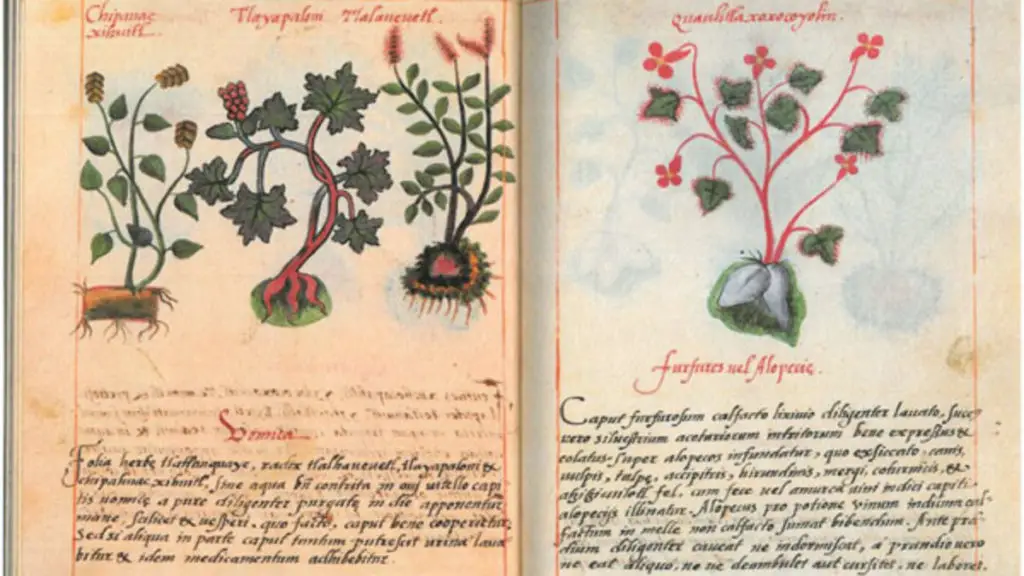 Chipauac
xihuitl.
Tlayapaloni
Tlalaheuetl.
Vomica
Folia herbę tlatlanquaye, radix tlalhaeuetl, tlayapaloni &
chipahuac xihuitl, sine aqua bñ contrita in oui uitello capi
tis uomicę a pure diligenter purgatę in die apponentur
mane, scilicet & uesperi, quo facto, caput bene cooperietur.
Sed si aliqua in parte caput tantum putrescit urina laua
bitur & idem medicamentum adhibebitur.
Quauhtlaxoxocoyolin.
Furfures uel Alopecię.
Caput furfurosum calfacto lixiuio diligenter lauato, succus
uero siluestrium acetariorum intritorum bene expressus &
colatus super alopecos infundatur, quo exsiccato, canis,
uulpis, talpę, accipitris, hirundinis, mergi, coturnicis, &
fel, cum fece uel amurca uini indici capiti
alopecijs illinatur. Alopecus pro potione uinum indicum cal-
factum in melle non calfacto sumat bibendum. Ante pran
dium diligenter caueat ne indormiscat, a prandio uero
ne eat aliquo, ne ue deambulet aut cursitet, ne laboret.